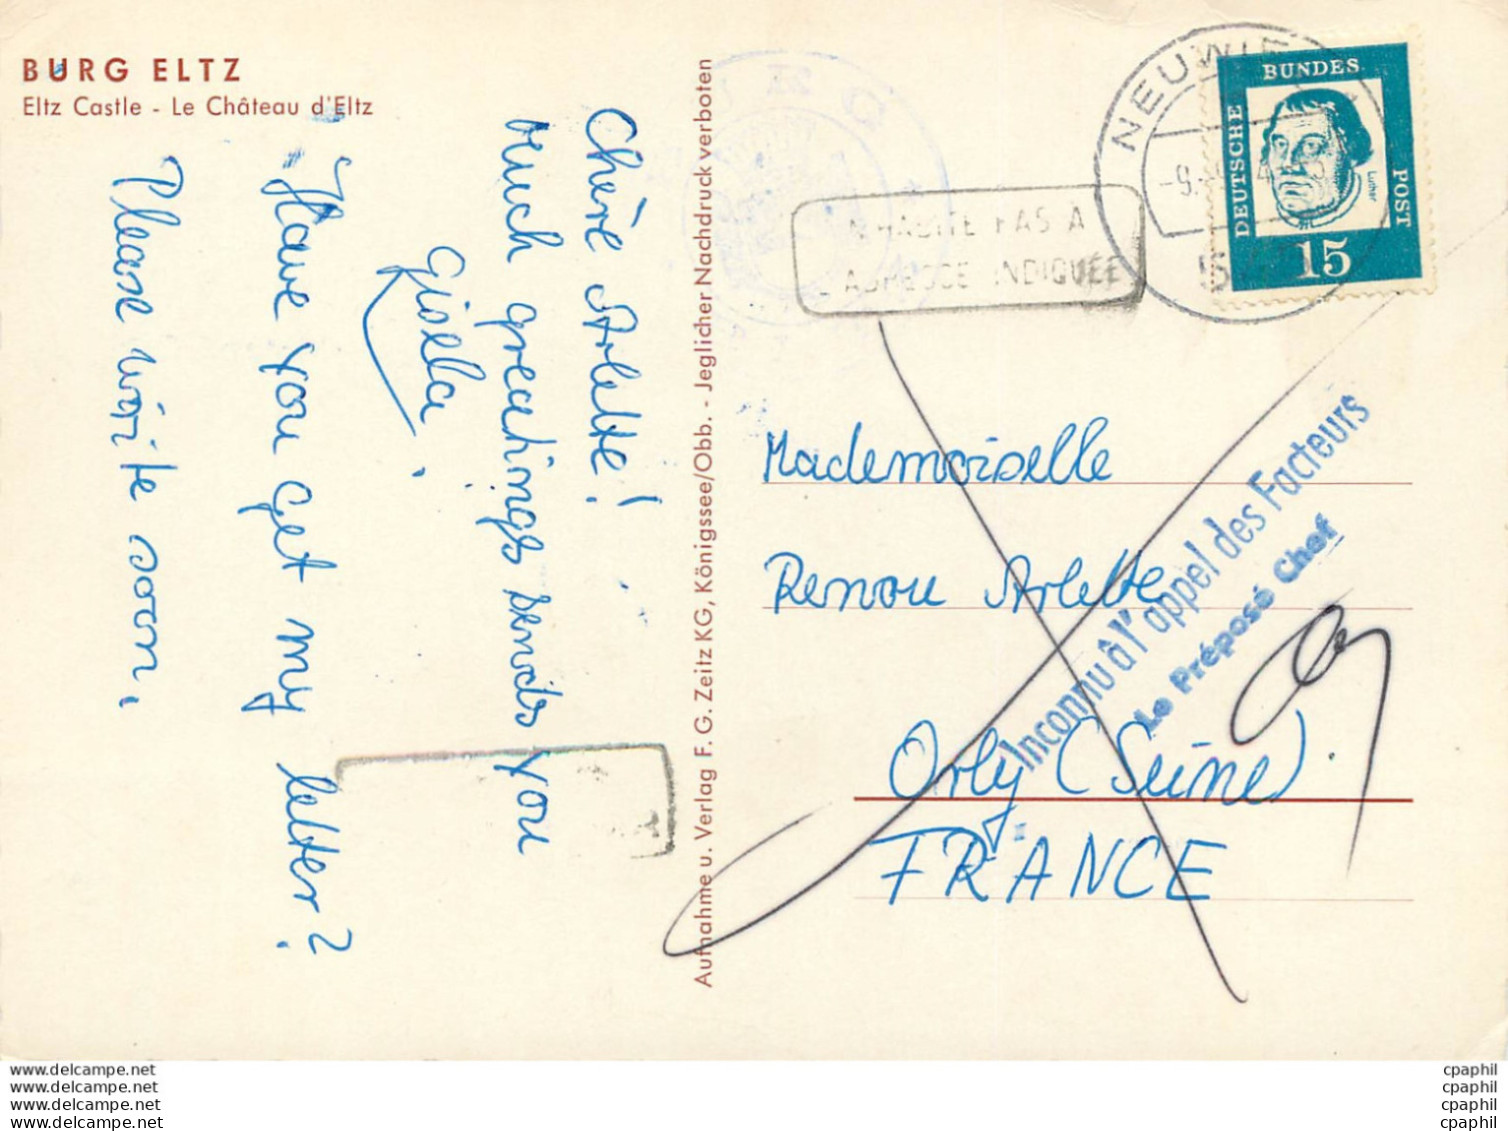 BURG ELTZ
Eltz Castle - Le Château d'Eltz
Chère Arlette!
Much greetings sends you
Gisela.
Have you get my letter?
Please write soon.
Aufnahme u. Verlag F. G. Zeitz KG, Königssee/Obb. - Jeglicher Nachdruck verboten
NEUWIE
-9.
DEUTSCHE
BUNDES
POST
Luther
15
N'HABITE PAS À
L'ADRESSE INDIQUÉE
Mademoiselle
Renou Arlette
Orly (Seine).
FRANCE
Inconnu à l'appel des Facteurs
Le Préposé Chef
www.delcampe.net
www.delcampe.net
www.delcampe.net
www.delcampe.net
cpaphil
cpaphil
cpaphil
cpaphil